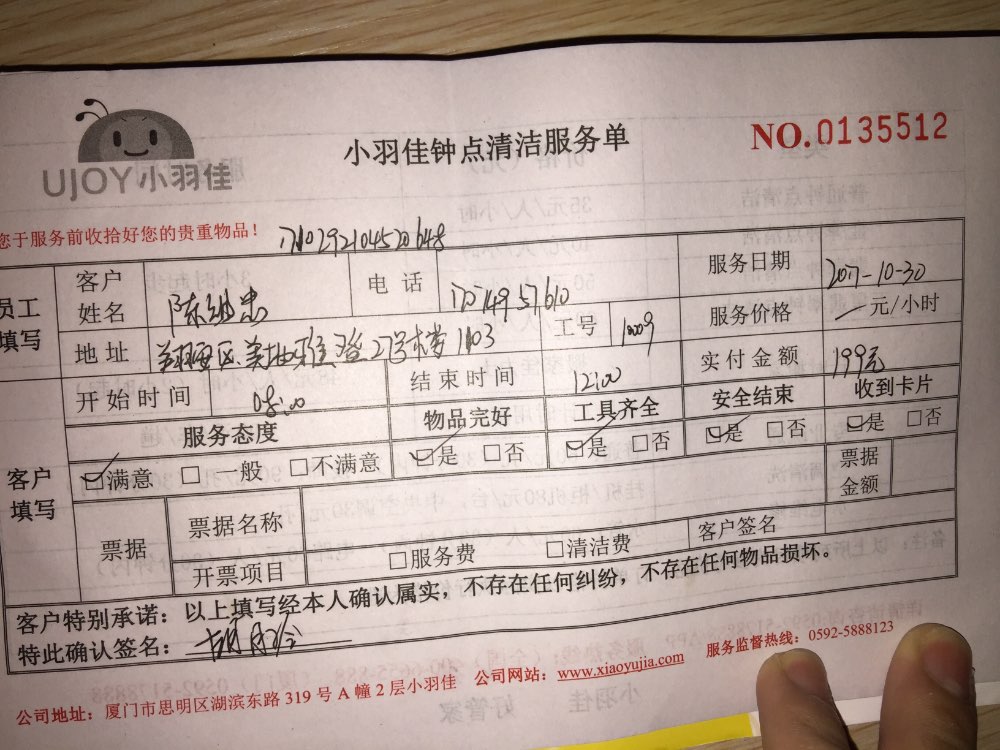 UJOY小羽佳
小羽佳钟点清洁服务单
NO.0135512
您于服务前收拾好您的贵重物品！
员工填写
客户姓名
电话
服务日期
2017-10-30
地址
27号楼1103
工号
服务价格
元/小时
开始时间
08:00
结束时间
12:00
实付金额
199元
客户填写
服务态度
物品完好
工具齐全
安全结束
收到卡片
满意 □ 一般 □不满意
是 □否
是 □否
是 □否
是 □否
票据
票据名称
票据金额
开票项目
□服务费 □清洁费
客户签名
客户特别承诺：以上填写经本人确认属实，不存在任何纠纷，不存在任何物品损坏。
特此确认签名：
公司地址：厦门市思明区湖滨东路 319 号 A 幢 2 层小羽佳 公司网站：www.xiaoyujia.com 服务监督热线：0592-5888123